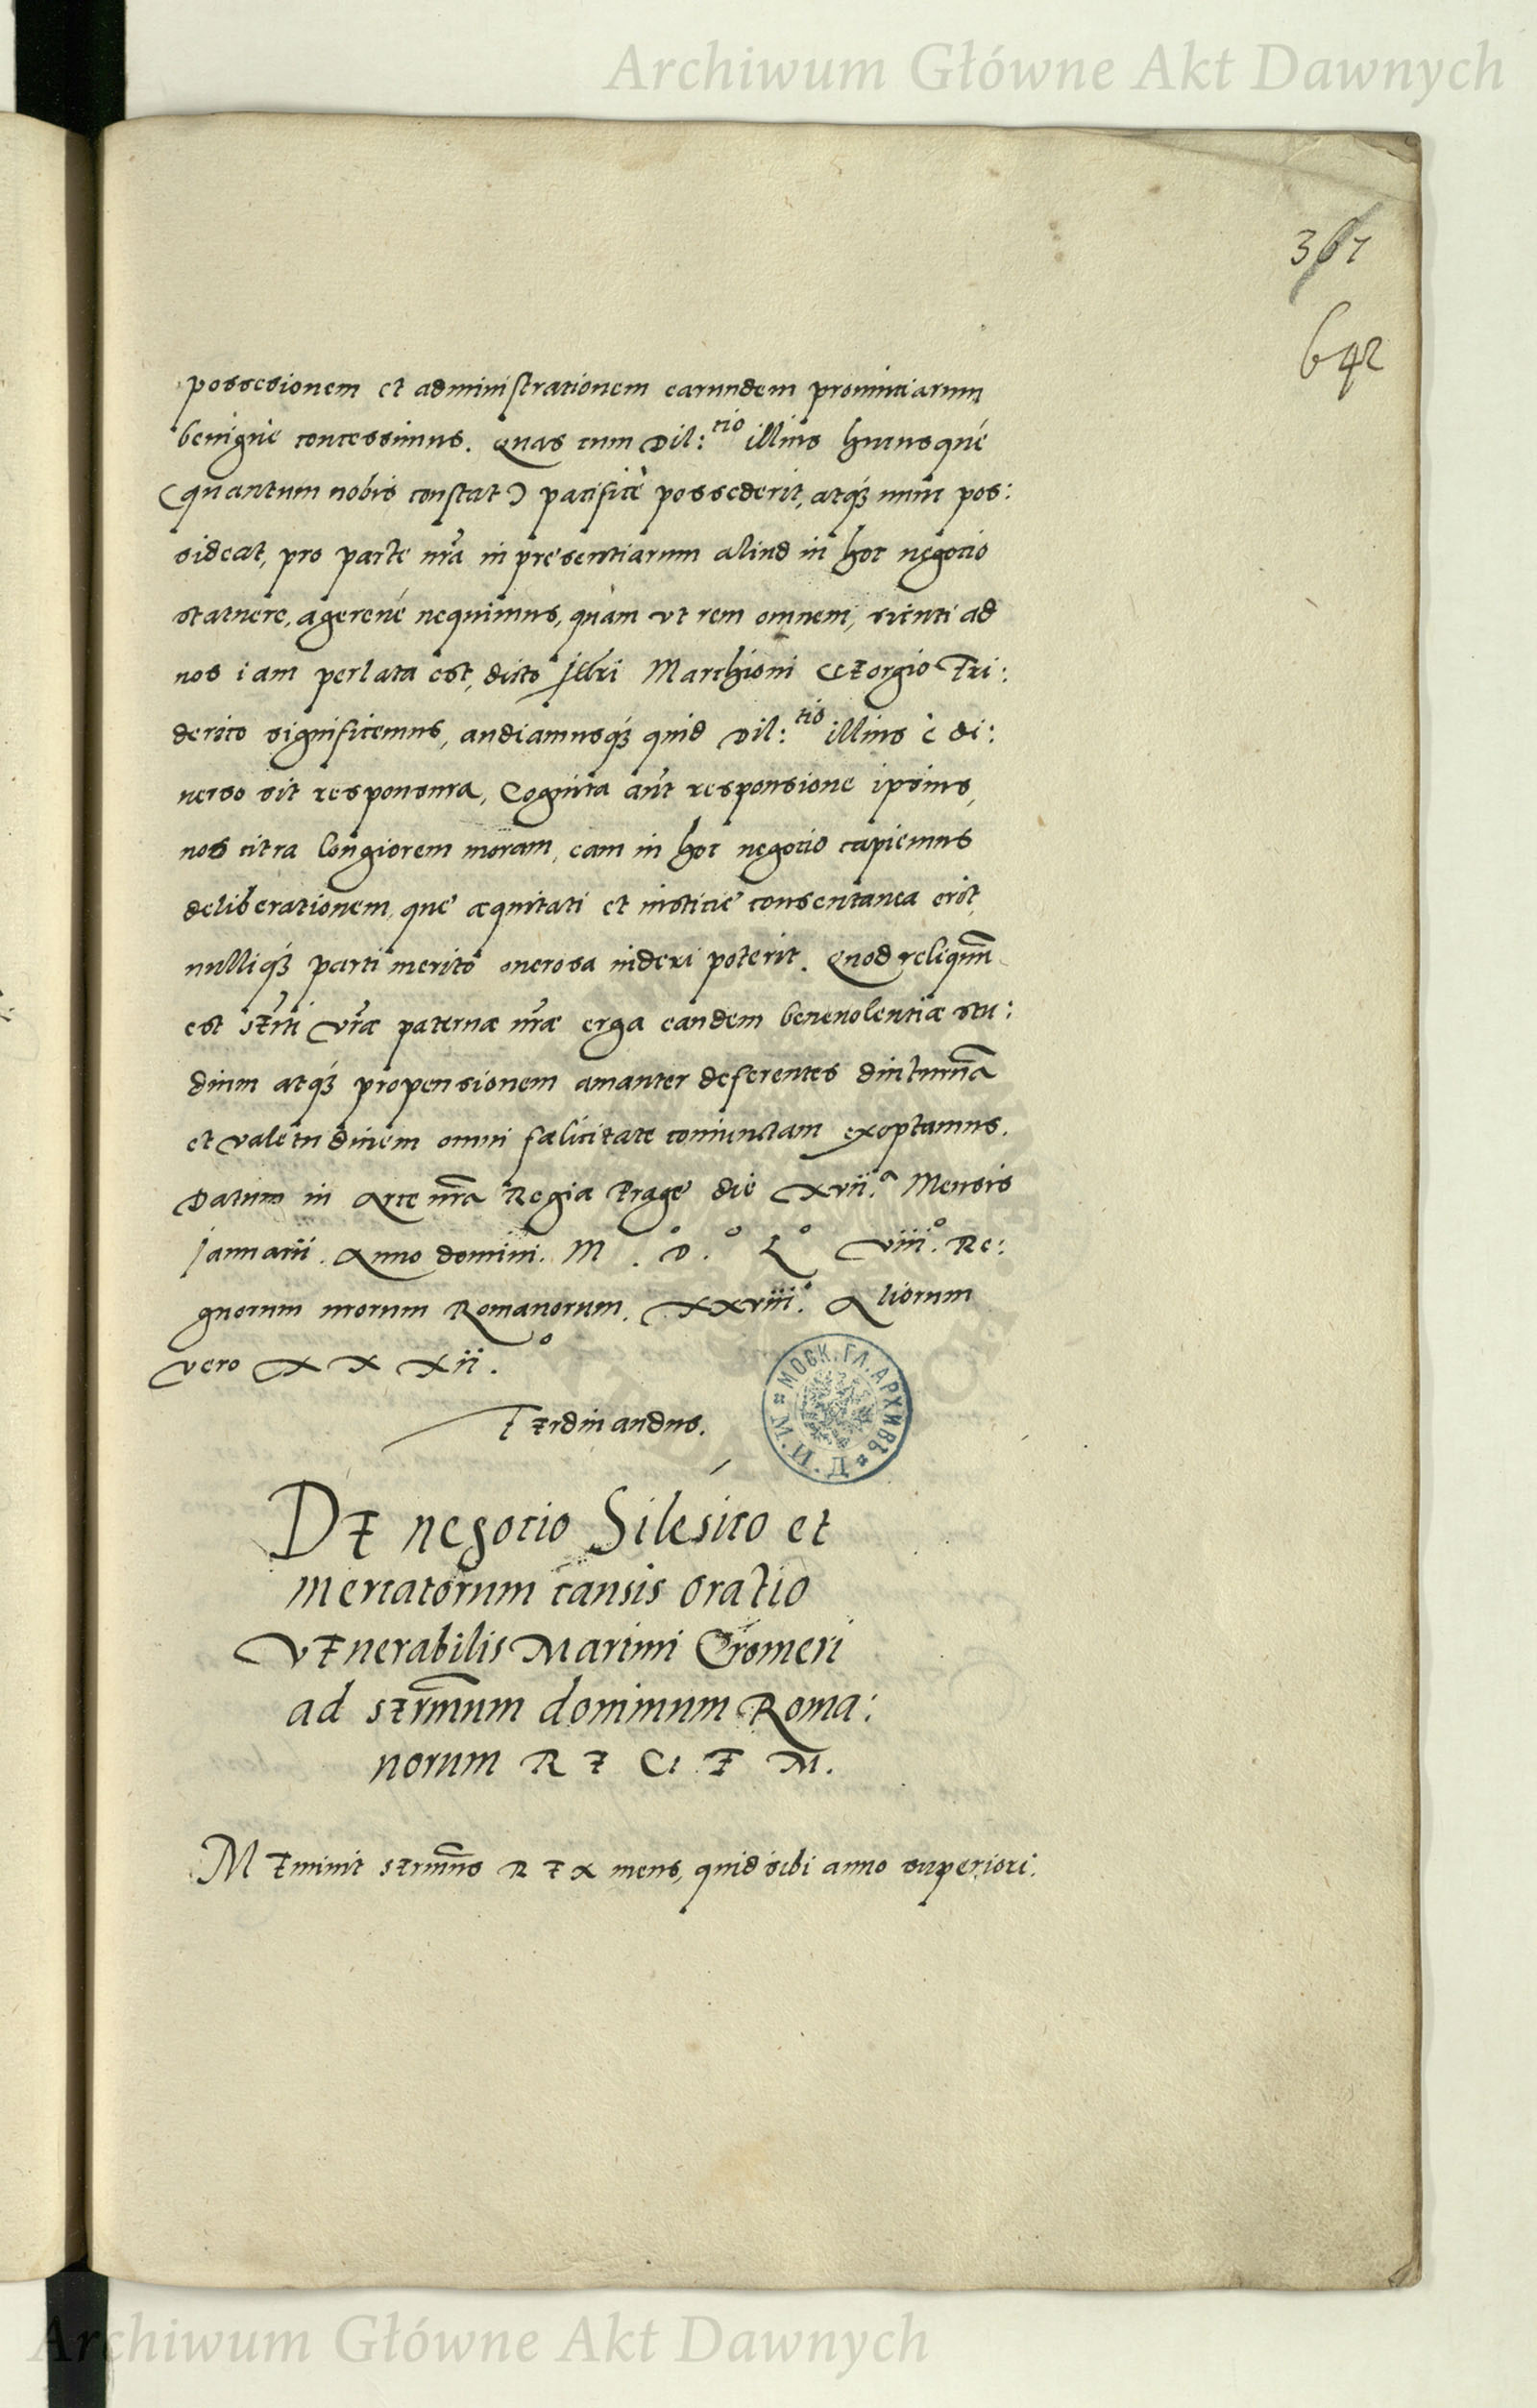 Archiwum Główne Akt Dawnych
361
642
possesionem et administrationem earundem prouintiarum
benigne concessimus. Quas cum Dil:tio illius hucusque
(quantum nobis constat) pacifice possederit, atq3 nunc pos:
sideat, pro parte nra in presentiarum aliud in hoc negocio
statuere, agereue nequimus, quam vt rem omnem, sicuti ad
nos iam perlata est, dicto Marchioni Georgio Fri:
derico significemus, audiamusq3 quid Dil:tio illius e di:
uerso sit responsura, Cognita aut responsione ipsius,
nos citra longiorem moram, eam in hoc negocio capiemus
deliberationem, que æquitati et iusticie consentanea erit,
nulliq3 parti merito onerosa uideri poterit. Quod reliquum
est Srti Vræ paternæ nræ erga eandem beneuolentiæ stu:
dium atq3 propensionem amanter deferentes diuturna
et valetudinem omni fœlicitate coniunctam exoptamus.
Datum in Arce nra Regia Prage die XVII.a Mensis
Januarii. Anno domini. M. D.o Lo VIII.o Re:
gnorum nrorum Romanorum. XXVIII.o Aliorum
vero XXXII.o
Ferdinandus.
МОСК. ГЛ. АРХИВЪ М. И. Д.
De negocio Silesico et
mercatorum causis oratio
Venerabilis Martini Cromeri
ad Sermum dominum Roma:
norum REGEM.
Meminit Sermus REX meus, quid sibi anno superiori:
Archiwum Główne Akt Dawnych